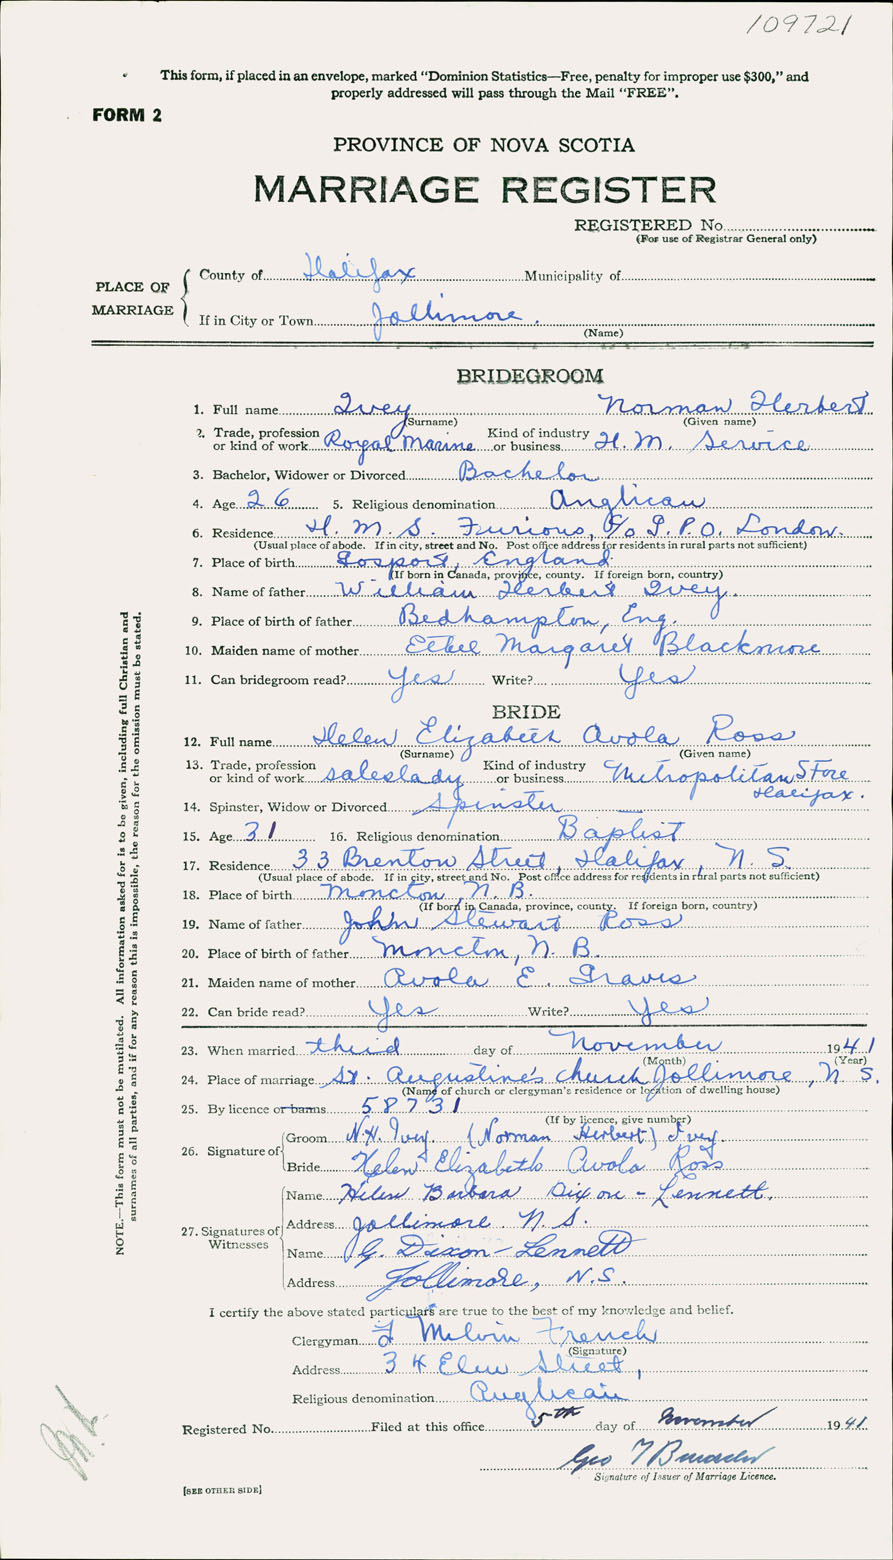 109721
This form, if placed in an envelope, marked "Dominion Statistics—Free, penalty for improper use $300," and
properly addressed will pass through the Mail "FREE".
FORM 2
PROVINCE OF NOVA SCOTIA
MARRIAGE REGISTER
REGISTERED No.
(For use of Registrar General only)
PLACE OF MARRIAGE
County of Halifax Municipality of
If in City or Town Jollimore.
(Name)
BRIDEGROOM
1. Full name Ivey Norman Herbert
(Surname) (Given name)
2. Trade, profession or kind of work Royal Marine Kind of industry or business H. M. Service
3. Bachelor, Widower or Divorced Bachelor
4. Age 26 5. Religious denomination Anglican
6. Residence H. M. S. Furious, c/o G. P. O. London.
(Usual place of abode. If in city, street and No. Post office address for residents in rural parts not sufficient)
7. Place of birth Gosport, England
(If born in Canada, province, county. If foreign born, country)
8. Name of father William Herbert Ivey.
9. Place of birth of father Bedhampton, Eng.
10. Maiden name of mother Ethel Margaret Blackmore
11. Can bridegroom read? Yes Write? Yes
BRIDE
12. Full name Helen Elizabeth Avola Ross
(Surname) (Given name)
13. Trade, profession or kind of work saleslady Kind of industry or business Metropolitan Store
Halifax.
14. Spinster, Widow or Divorced Spinster
15. Age 31 16. Religious denomination Baptist
17. Residence 33 Brenton Street, Halifax, N. S.
(Usual place of abode. If in city, street and No. Post office address for residents in rural parts not sufficient)
18. Place of birth Moncton, N. B.
(If born in Canada, province, county. If foreign born, country)
19. Name of father John Stewart Ross
20. Place of birth of father Moncton, N. B.
21. Maiden name of mother Avola E. Graves
22. Can bride read? Yes Write? Yes
23. When married third day of November 1941
(Month) (Year)
24. Place of marriage St. Augustine's church Jollimore, N S.
(Name of church or clergyman's residence or location of dwelling house)
25. By licence or banns 58731
(If by licence, give number)
26. Signature of
Groom N.H. Ivey. (Norman Herbert) Ivey.
Bride Helen Elizabeth Avola Ross
27. Signatures of Witnesses
Name Helen Barbara Dixon - Lennett.
Address Jollimore N. S.
Name G. Dixon - Lennett
Address Jollimore, N.S.
I certify the above stated particulars are true to the best of my knowledge and belief.
Clergyman Melvin French
(Signature)
Address 34 Elm Street,
Religious denomination Anglican
Registered No. Filed at this office 5th day of November 1941.
Geo
Signature of Issuer of Marriage Licence.
[SEE OTHER SIDE]
NOTE.—This form must not be mutilated. All information asked for is to be given, including full Christian and
surnames of all parties, and if for any reason this is impossible, the reason for the omission must be stated.